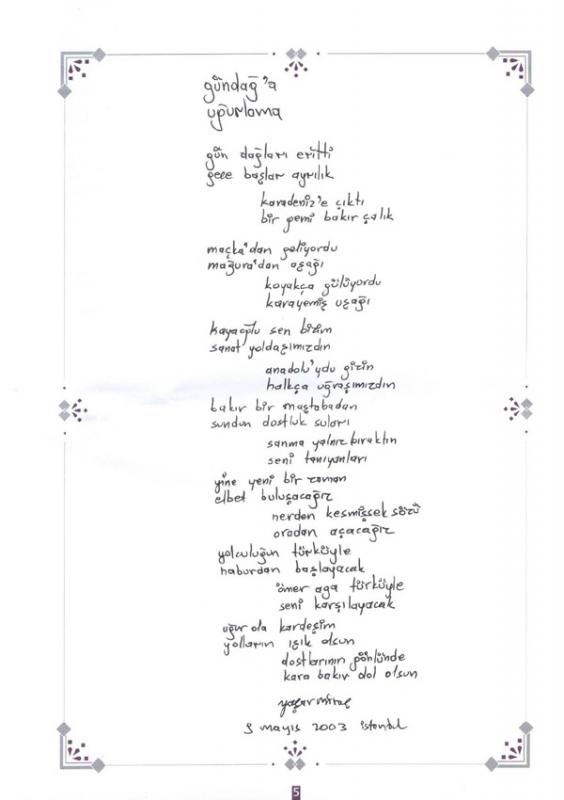 gündağ'a
uğurlama
gün dağları eritti
gece başlar ayrılık
karadeniz'e çıktı
bir gemi bakır çalık
maçka'dan geliyordu
mağura'dan aşağı
koyakça gülüyordu
karayemiş uşağı
kayaoğlu sen bizim
sanat yoldaşımızdın
anadolu'ydu gizin
halkça uğraşımızdın
bakır bir maştabadan
sundun dostluk suları
sanma yalnız bıraktın
seni tanıyanları
yine yeni bir zaman
elbet buluşacağız
nerden kesmişsek sözü
oradan açacağız
yolculuğun türküyle
haburdan başlayacak
ömer aga türküyle
seni karşılayacak
uğur ola kardeşim
yolların ışık olsun
dostlarının gönlünde
kara bakır dol olsun
yaşar miraç
3 mayıs 2003 istanbul
5